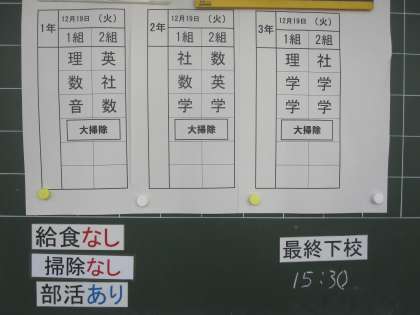 1年
12月19日 （火）
1組 2組
理 英
数 社
音 数
大掃除
2年
12月19日 （火）
1組 2組
社 数
数 英
学 学
大掃除
3年
12月19日 （火）
1組 2組
理 社
学 学
学 学
大掃除
給食なし
掃除なし
部活あり
最終下校
15:30